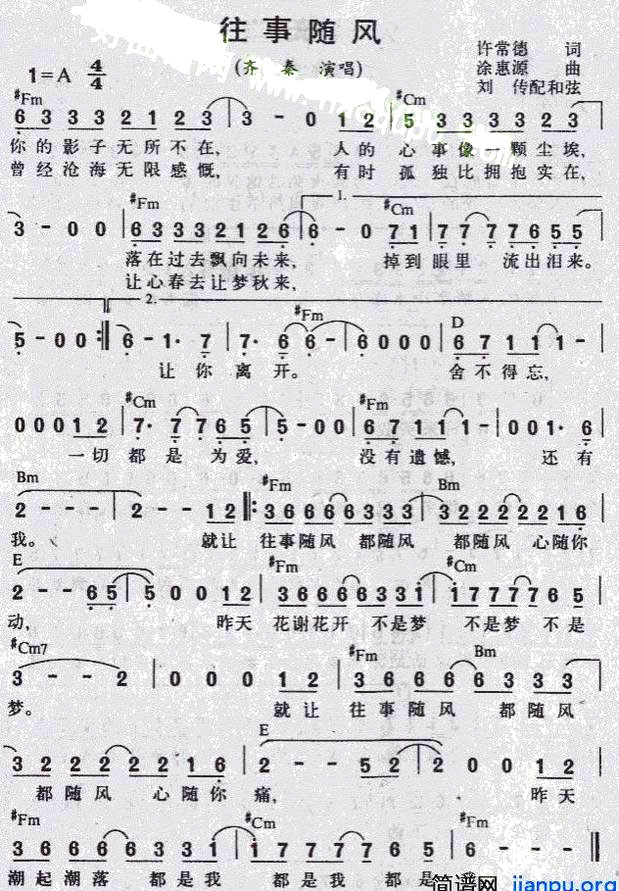 往事随风
(齐秦 演唱)
许常德 词
涂惠源 曲
刘 传配和弦
1=A 4/4
#Fm #Cm
6 3 3 3 2 1 2 3 | 3 - 0 1 2 | 5 3 3 3 3 2 3
你的影子无所不在, 人的 心事像一颗尘埃,
曾经沧海无限感慨, 有时 孤独比拥抱实在,
#Fm 1. #Cm
3 - 0 0 | 6 3 3 3 2 1 2 6 | 6 - 0 7 1 | 7 7 7 7 7 6 5 5
落在过去飘向未来, 掉到 眼里 流出泪来。
让心春去让梦秋来,
2. #Fm D
5 - 0 0 :| 6 - 1· 7 | 7· 7 6 6 - | 6 0 0 0 | 6 7 1 1 1 -
让你 离开。 舍不得忘,
#Cm #Fm
0 0 0 1 2 | 7· 7 7 7 6 5 | 5 - 0 0 | 6 7 1 1 1 - | 0 0 1· 6
一切 都是 为爱, 没有遗憾, 还有
Bm #Fm Bm
2 - - - | 2 - - 1 2 |: 3 6 6 6 6 3 3 3 | 3 2 2 2 2 2 1 6
我。 就让 往事随风 都随风 都随风 心随你
E #Fm #Cm
2 - - 6 5 | 5 0 0 1 2 | 3 6 6 6 6 3 3 1 | 1 7 7 7 7 7 6 5
动, 昨天 花谢花开 不是梦 不是梦 不是
#Cm7 #Fm Bm
3 - - 2 | 0 0 0 1 2 | 3 6 6 6 6 3 3 3
梦。 就让 往事随风 都随风
E
3 2 2 2 2 2 1 6 | 2 - - 5 2 | 2 0 0 1 2
都随风 心随你痛, 昨天
#Fm #Cm #Fm
3 6 6 6 6 3 3 1 | 1 7 7 7 7 7 6 5 | 6 - - - :|
潮起潮落 都是我 都是我 都是
简谱网 jianpu.org